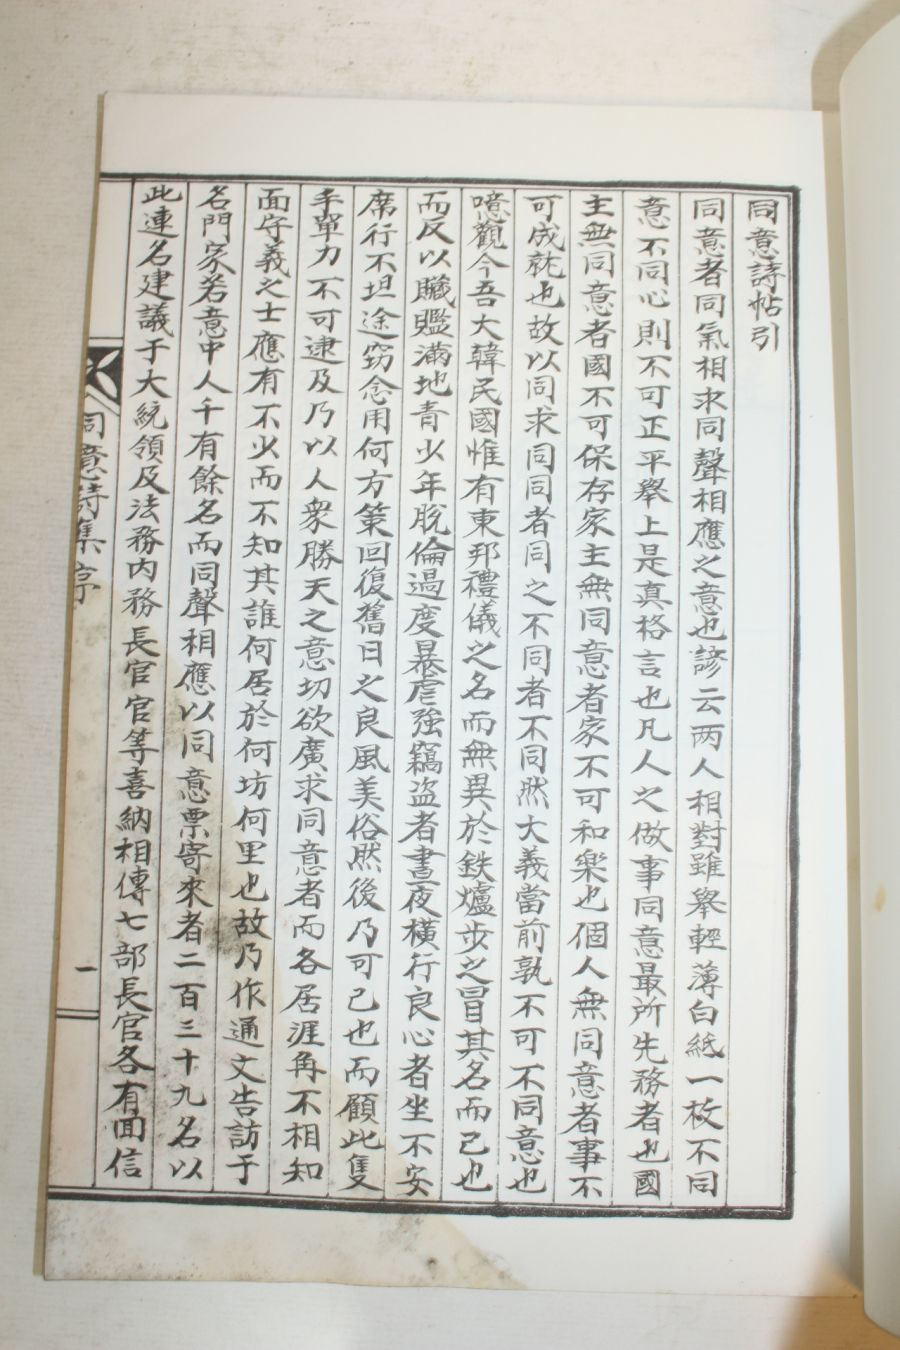 同意詩帖引
同意者同氣相求同聲相應之意也諺云两人相對雖舉輕薄白紙一枚不同
意不同心則不可正平舉上是真格言也凡人之做事同意最所先務者也國
主無同意者國不可保存家主無同意者家不可和樂也個人無同意者事不
可成就也故以同求同同者同之不同者不同然大義當前孰不可不同意也
噫觀今吾大韓民國惟有東邦禮儀之名而無異於鉄爐步之冒其名而已也
而反以贓贓滿地青少年脫倫過度暴虐強竊盗者晝夜橫行良心者坐不安
席行不坦途窃念用何方策回復舊日之良風美俗然後乃可已也而顧此隻
手單力不可逮及乃以人衆勝天之意切欲廣求同意者而各居涯角不相知
面守義之士應有不少而不知其誰何居於何坊何里也故乃作通文告訪于
名門家若意中人千有餘名而同聲相應以同意票寄來者二百三十九名以
此連名建議于大統領及法務内務長官官等喜納相傳七部長官各有回信
同意詩集序
一